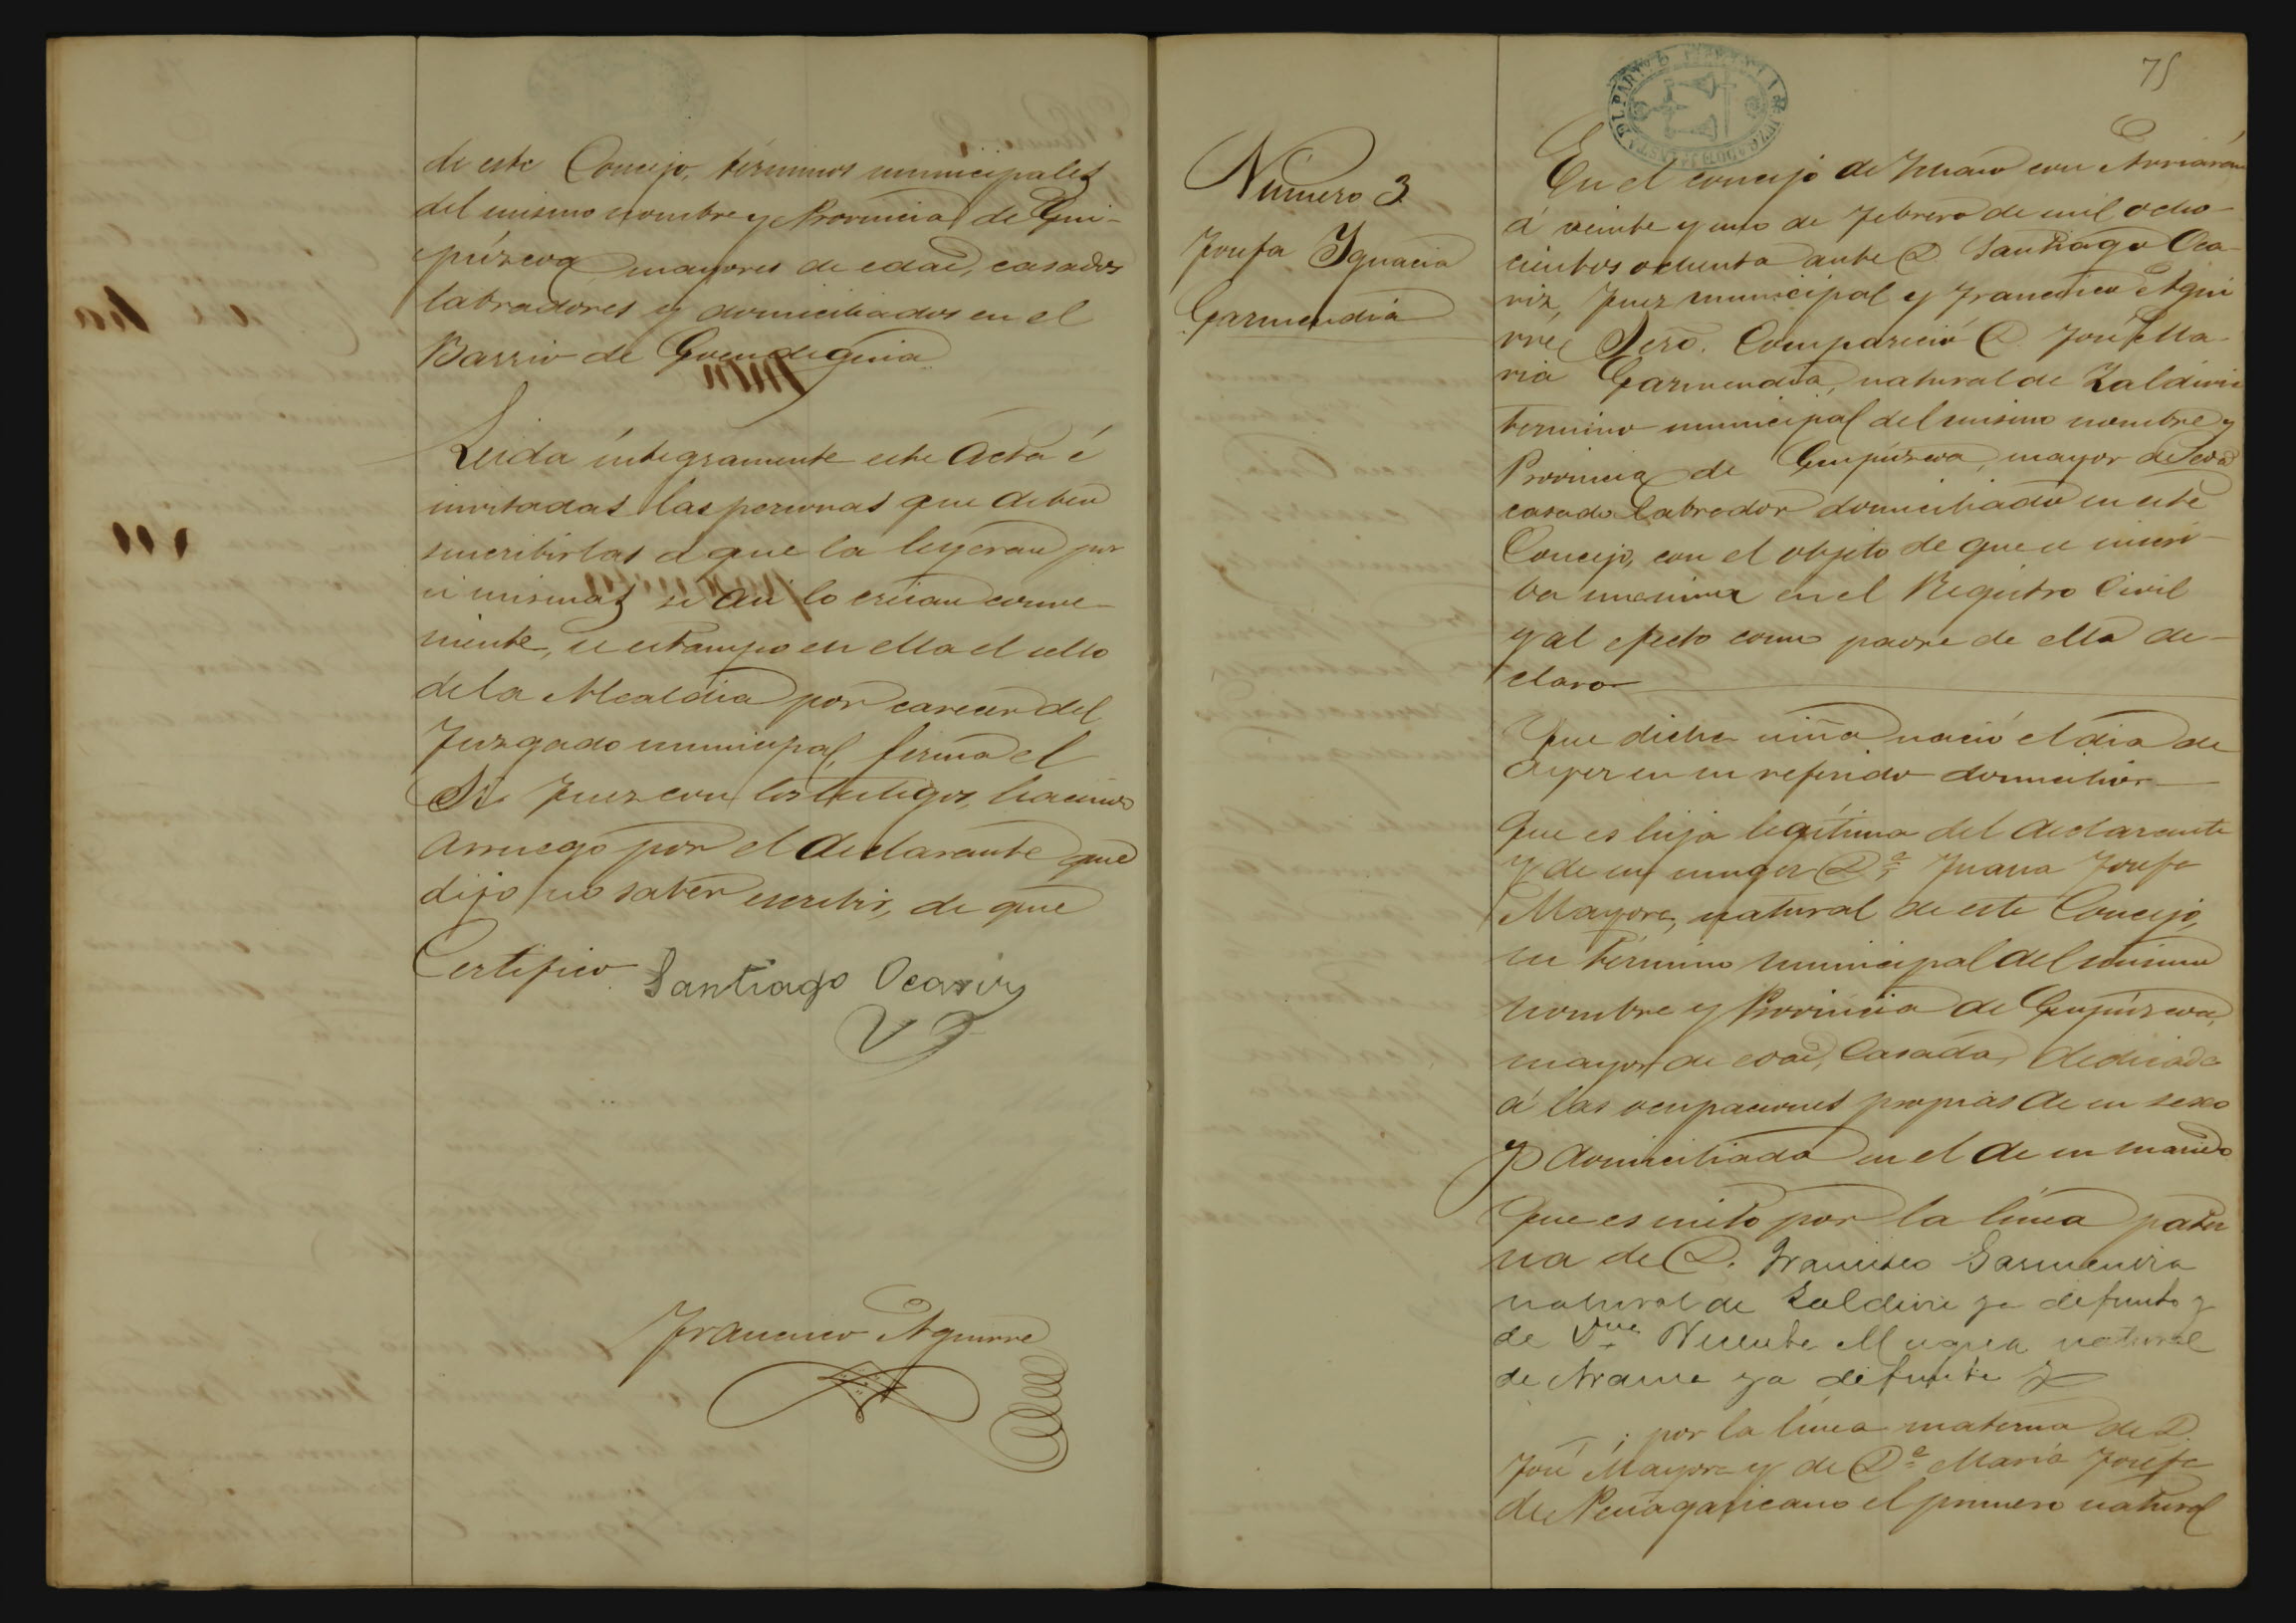 de este Concejo, términos municipales
del mismo nombre y Provincia de Gui-
púzcoa mayores de edad, casados
labradores y domiciliados en el
Barrio de
Leida íntegramente este Acta é
invitadas las personas que deben
suscribirlas á que la leyeran por
si mismas si asi lo creian conve-
niente, se estampo en ella el sello
de la Alcaldia por carecer del
Juzgado municipal, firma el
Sr. Juez con los testigos, haciendo
arruego por el declarante que
dijo no saber escribir, de que
Certifico
Santiago Ocariz
Francisco Aguirre
75
Número 3
Josefa Ygnacia
Garmendia
En el concejo de con Arriarán
á veinte y uno de Febrero de mil ocho-
cientos ochenta ante D. Santiago Oca-
riz, Juez municipal y Francisco Agui
rre Secro. Compareció D. José Ma-
ria Garmendia, natural de Zaldivia
termino municipal del mismo nombre y
Provincia de Guipúzcoa, mayor de edad
casado labrador domiciliado en este
Concejo, con el objeto de que se inscri-
ba una niña en el Registro Civil
y al efecto como padre de ella de-
claro
Que dicha niña nació el dia de
ayer en su referido domicilio
Que es hija legítima del declarante
y de su muger D.ª Juana Josefa
Mayora, natural de este Concejo,
su término municipal del mismo
nombre y Provincia de Guipúzcoa,
mayor de edad, Casada, dedicada
á las ocupaciones propias de su sexo
y domiciliada en el de su marido
Que es nieto por la línea pater
na de D. Francisco Garmendia
natural de Zaldivia ya defunto y
de Vicenta Mugica natural
de Arama ya defunta y
por la línea materna de D.
José Mayora y de D.ª Maria Josefa
de Peñagaricano el primero natural